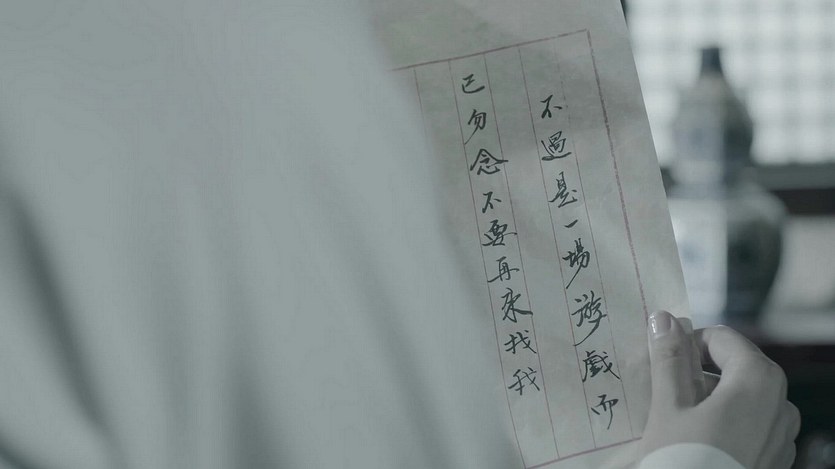 不過是一場遊戲而
已勿念不要再來找我